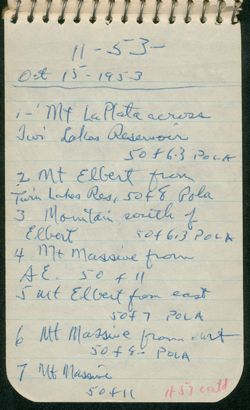 11-53-
Oct 15-1953
1-' Mt LaPlata across
Twi Lakes Reservoir
50 f 6.3 POLA
2 Mt Elbert from
Twin Lakes Res, 50 f 8 Pola
3 Mountain south of
Elbert 50 f 6.3 POLA
4 Mt Massive from
A.E. 50 f 11
5 Mt Elbert from east
50 f 7 POLA
6 Mt Massive from east
50 f 8- POLA
7 Mt Massive
50 f 11